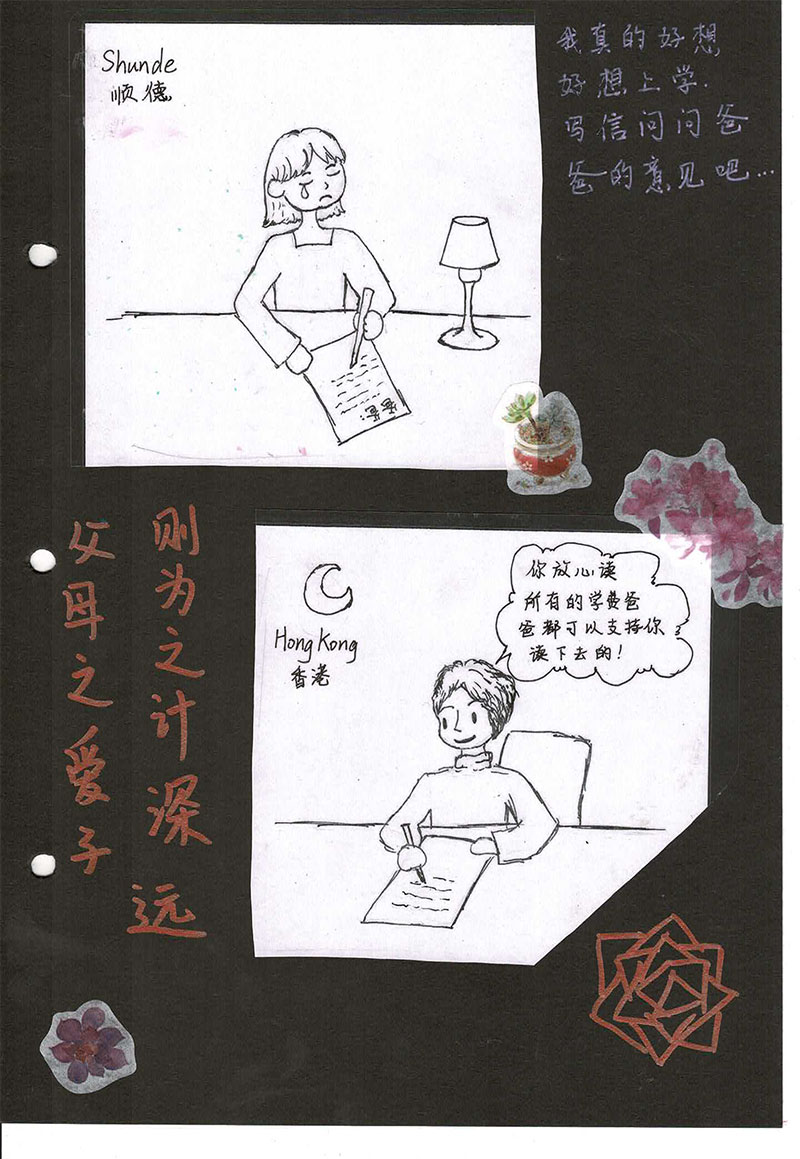 Shunde
顺德
我真的好想
好想上学.
写信问问爸
爸的意见吧...
爸爸:
父母之爱子
则为之计深远
Hong Kong
香港
你放心读
所有的学费爸
爸都可以支持你
读下去的!